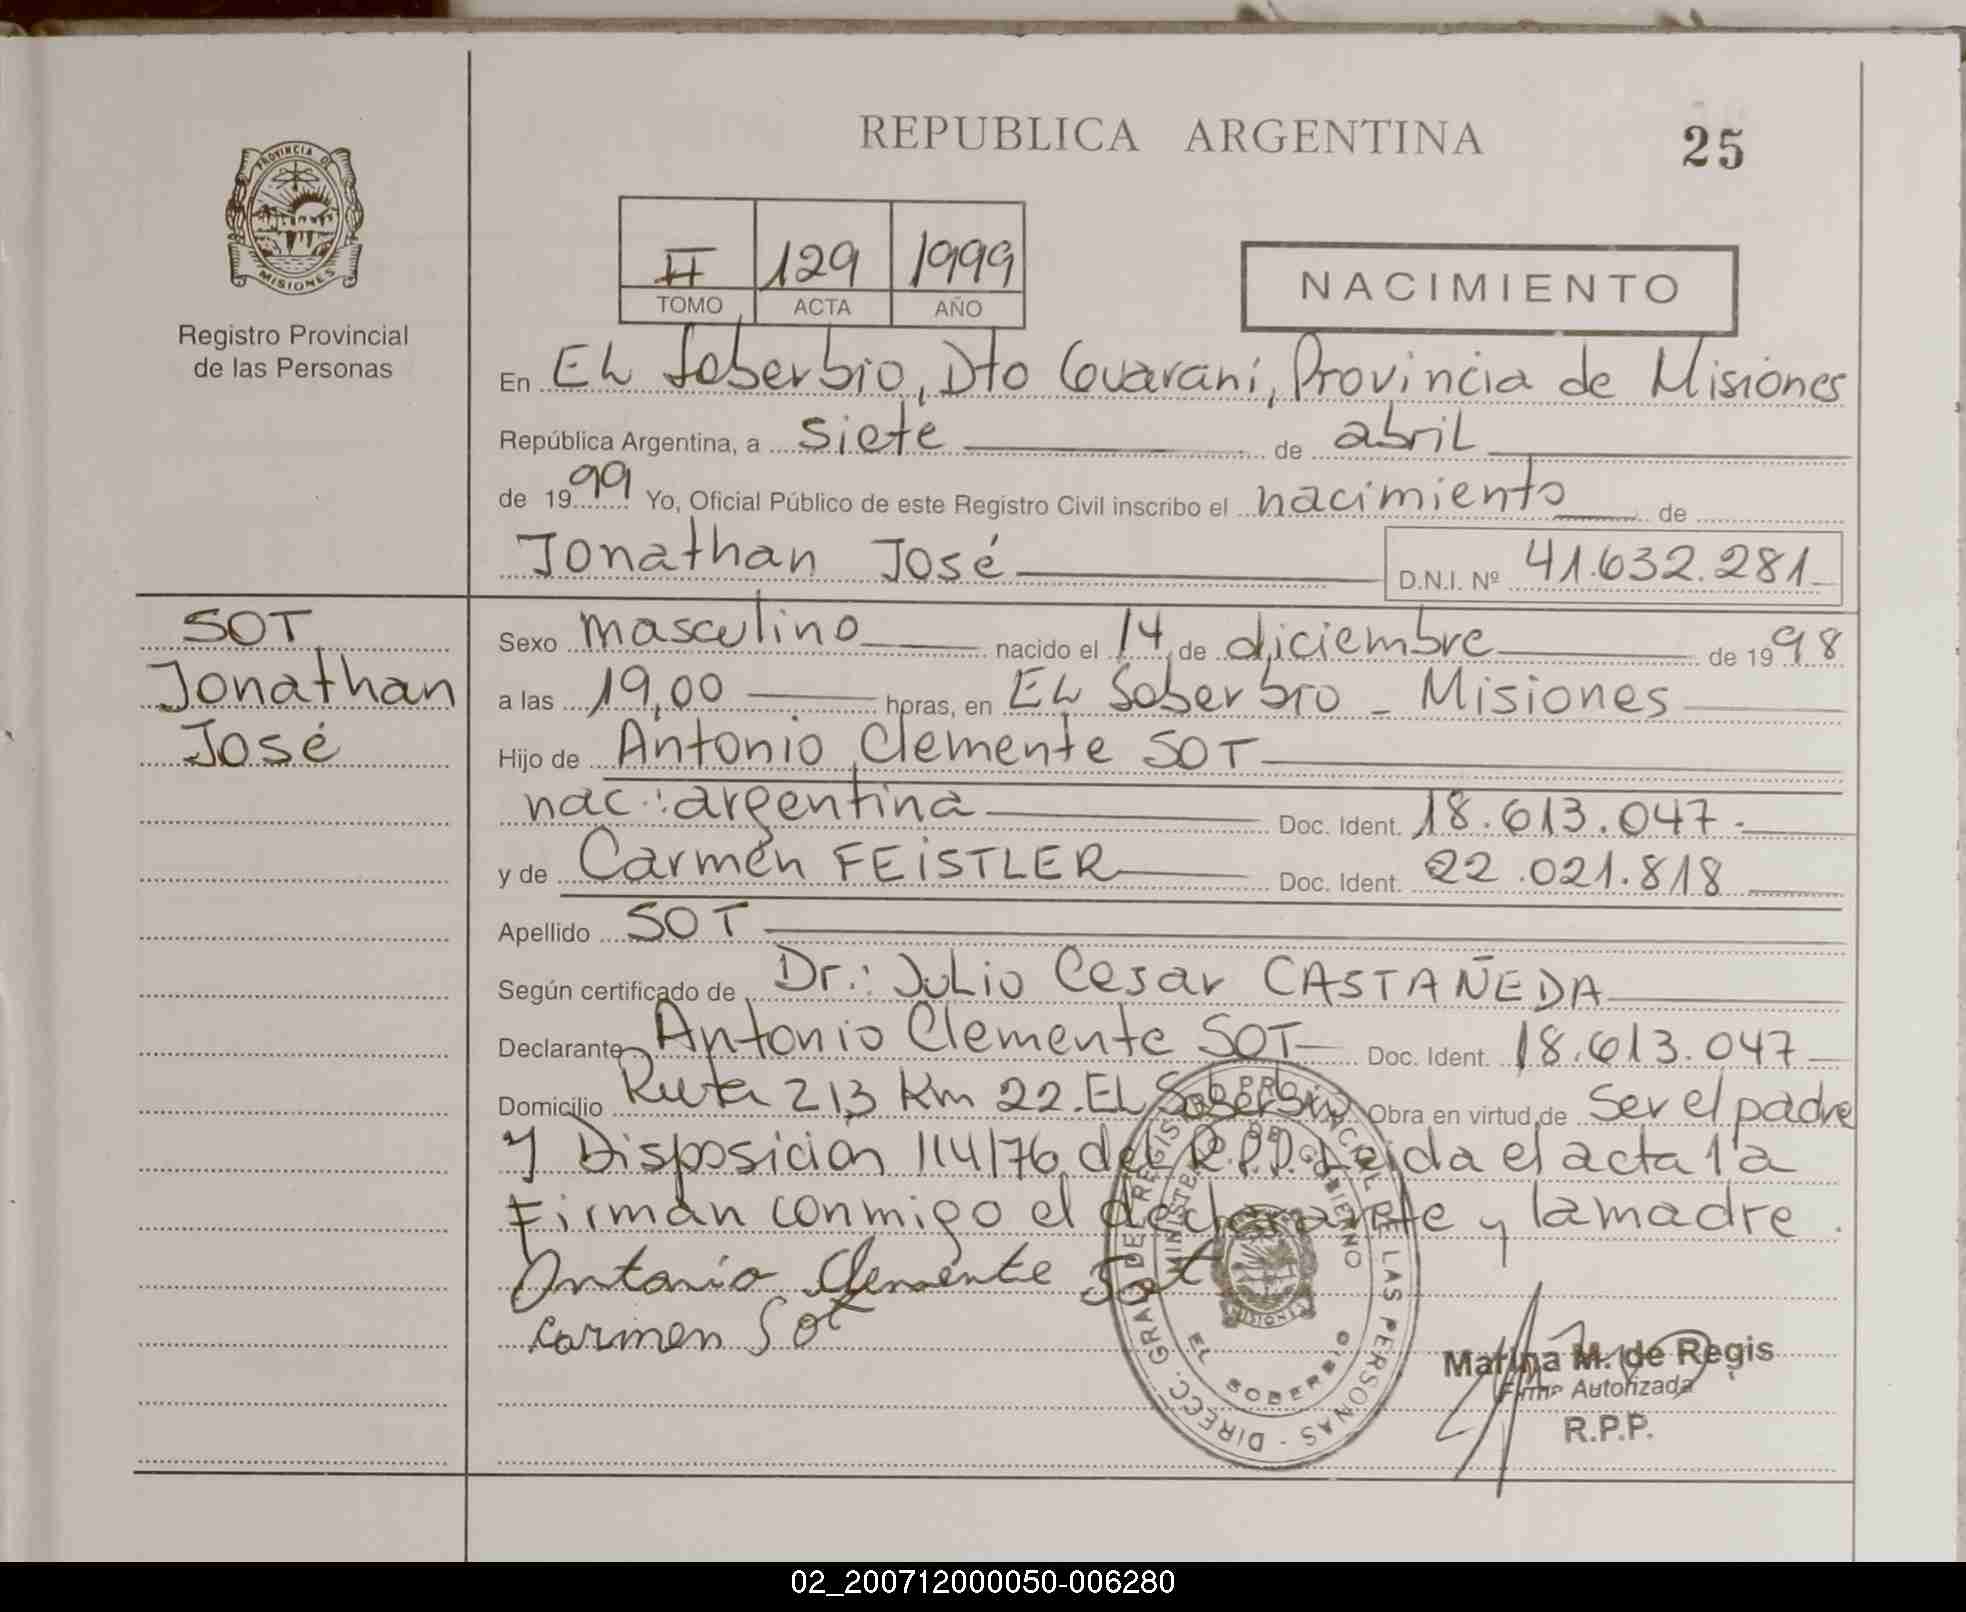 REPUBLICA ARGENTINA
25
PROVINCIA DE
MISIONES
Registro Provincial
de las Personas
II 129 1999
TOMO ACTA AÑO
NACIMIENTO
En EL Soberbio, Dto Guaraní, Provincia de Misiones
República Argentina, a siete de abril
de 1999 Yo, Oficial Público de este Registro Civil inscribo el nacimiento de
Jonathan José D.N.I. Nº 41.632.281
SOT
Jonathan
José
Sexo masculino nacido el 14 de diciembre de 1998
a las 19,00 horas, en EL Soberbio - Misiones
Hijo de Antonio Clemente SOT
nac.: argentina Doc. Ident. 18.613.047.
y de Carmen FEiSTLER Doc. Ident. 22.021.818
Apellido SOT
Según certificado de Dr.: Julio Cesar CASTAÑEDA
Declarante Antonio Clemente SOT Doc. Ident. 18.613.047
Domicilio Ruta 213 Km 22. EL Soberbio Obra en virtud de Ser el padre
y Disposición 114/76 del R.P.P. Leida el acta la
Firman conmigo el declarante y la madre.
Antonio Clemente Sot
Carmen Sot
DIRECC. GRAL DE REGISTRO PROVINCIAL DE LAS PERSONAS
MINISTERIO DE GOBIERNO
MISIONES
EL SOBERBIO
Marina M. de Regis
Firma Autorizada
R.P.P.
02_200712000050-006280